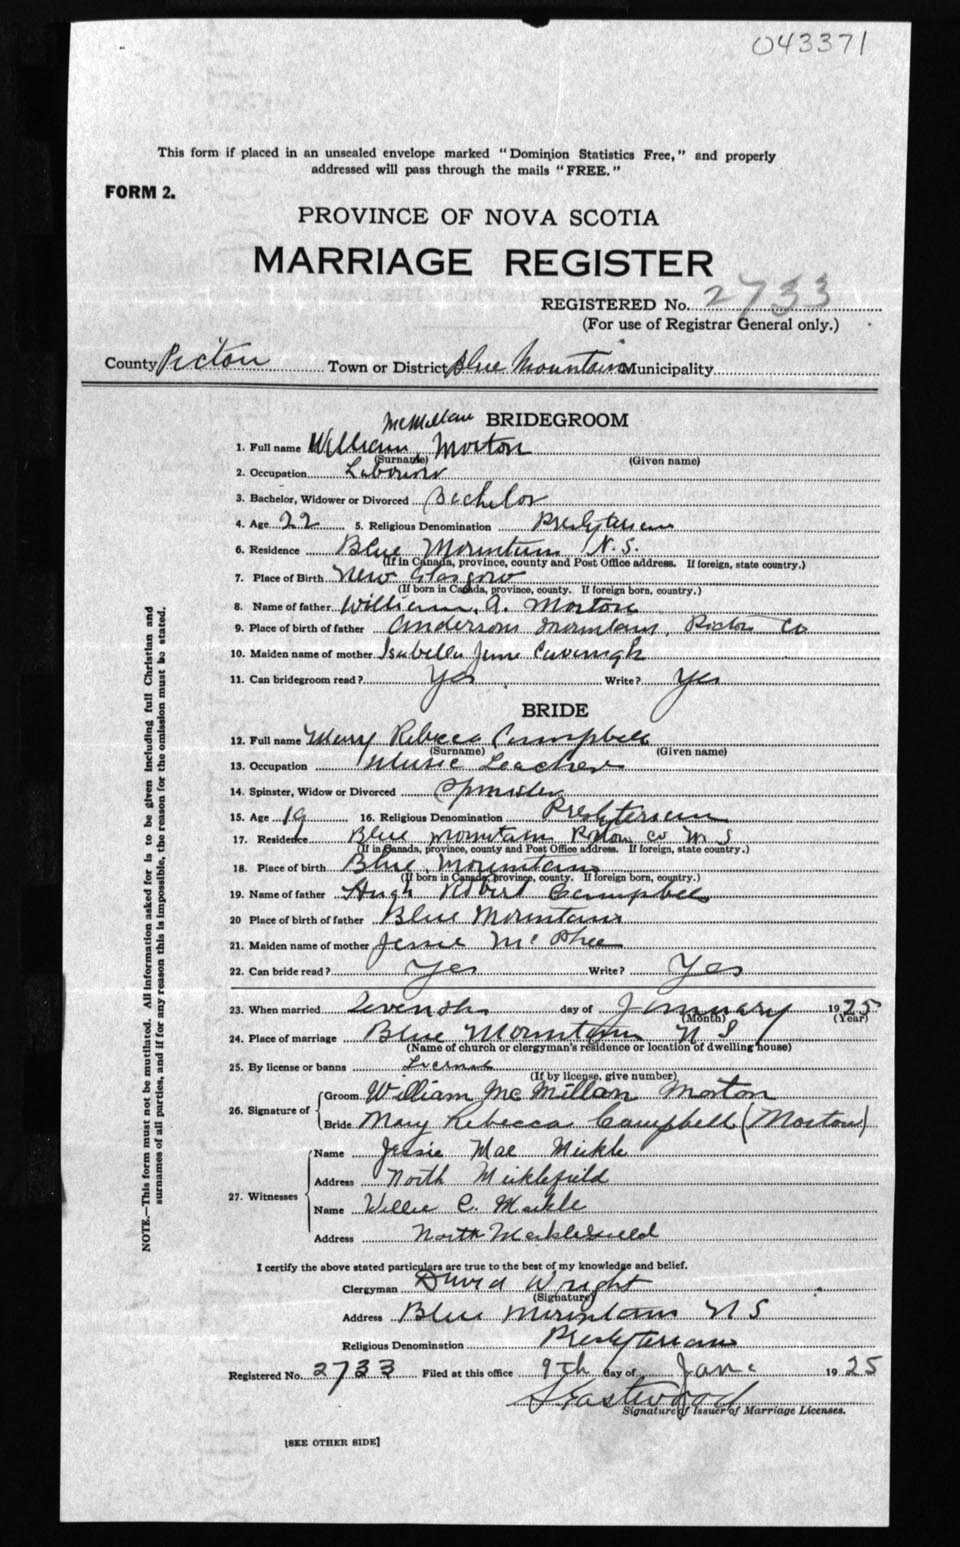 043371
This form if placed in an unsealed envelope marked "Dominion Statistics Free," and properly
addressed will pass through the mails "FREE."
FORM 2.
PROVINCE OF NOVA SCOTIA
MARRIAGE REGISTER
REGISTERED No. 2733
(For use of Registrar General only.)
County Pictou Town or District Blue Mountain Municipality
BRIDEGROOM
McMillan
1. Full name William Morton
(Surname) (Given name)
2. Occupation Laborer
3. Bachelor, Widower or Divorced Bachelor
4. Age 22 5. Religious Denomination Presbyterian
6. Residence Blue Mountain N.S.
(If in Canada, province, county and Post Office address. If foreign, state country.)
7. Place of Birth New Glasgow
(If born in Canada, province, county. If foreign born, country.)
8. Name of father William A. Morton
9. Place of birth of father Andersons Mountain, Pictou Co
10. Maiden name of mother Isabella Jane Cavanagh
11. Can bridegroom read? Yes Write? Yes
BRIDE
12. Full name Mary Rebecca Campbell
(Surname) (Given name)
13. Occupation Music Teacher
14. Spinster, Widow or Divorced Spinster
15. Age 19 16. Religious Denomination Presbyterian
17. Residence Blue Mountain Pictou Co N S
(If in Canada, province, county and Post Office address. If foreign, state country.)
18. Place of birth Blue Mountain
(If born in Canada, province, county. If foreign born, country.)
19. Name of father Hugh Robert Campbell
20 Place of birth of father Blue Mountain
21. Maiden name of mother Jessie McPhee
22. Can bride read? Yes Write? Yes
23. When married Seventh day of January 1925
(Month) (Year)
24. Place of marriage Blue Mountain N S
(Name of church or clergyman's residence or location of dwelling house)
25. By license or banns License
(If by license, give number)
26. Signature of Groom William McMillan Morton
Bride Mary Rebecca Campbell (Morton)
27. Witnesses Name Jessie Mae Meikle
Address North Meiklefield
Name Willie C. Meikle
Address North Meiklefield
I certify the above stated particulars are true to the best of my knowledge and belief.
Clergyman David Wright
(Signature)
Address Blue Mountain N S
Religious Denomination Presbyterian
Registered No. 2733 Filed at this office 9th day of Jan 1925
S Eastwood
Signature of Issuer of Marriage Licenses.
[SEE OTHER SIDE]
NOTE.—This form must not be mutilated. All information asked for is to be given including full Christian and
surnames of all parties, and if for any reason this is impossible, the reason for the omission must be stated.